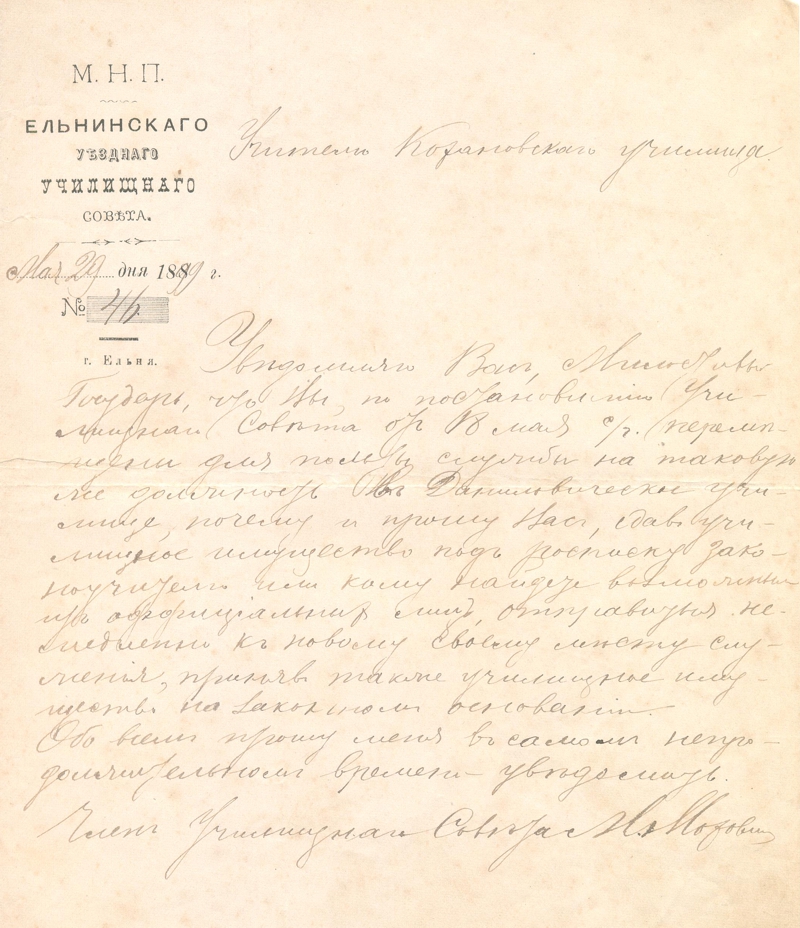 М. Н. П.
ЕЛЬНИНСКАГО
УѢЗДНАГО
УЧИЛИЩНАГО
СОВѢТА.
Мая 29 дня 1889 г.
№ 46.
г. Ельня.
Учителю училища.
Увѣдомляю Васъ, Милостивый
Государь, что Вы, по постановленію Учи-
лищнаго Совѣта отъ 18 мая с/г. перемѣ-
щены для пользы службы на таковую
же должность въ Даниловическое учи-
лище, почему и прошу Васъ, сдавъ учи-
лищное имущество подъ росписку зако-
ноучителю или кому найдете возможнымъ
изъ оффиціальныхъ лицъ, отправиться не-
медленно къ новому своему мѣсту слу-
женія, принявъ также училищное иму-
щество на законномъ основаніи.
Обо всемъ прошу меня въ самомъ непро-
должительномъ времени увѣдомить.
Членъ Училищнаго Совѣта М.